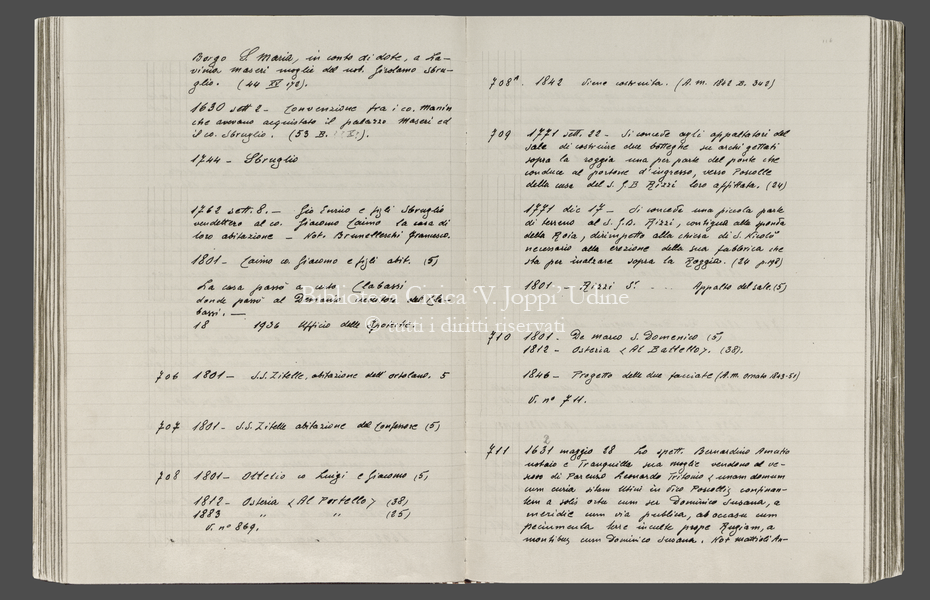 Borgo S. Maria, in conto di dote, a La-
vinia Maseri moglie del nob. Girolamo Sbru-
glio. (44 IV 172).
1630 sett 2 - Convenzione fra i co. Manin
che avevano acquistato il palazzo Maseri ed
il co. Sbruglio. (53 B.
1744 - Sbruglio
1762 sett. 8. - Gio Enrico e figli Sbruglio
vendettero al co. Giacomo Caimo la casa di
loro abitazione - Not. Brunelleschi Francesco.
1801 - Caimo co. Giacomo e figli abit. (5)
La casa passò a Clabassi
donde passò al eredi del Cla-
bassi. -
18 1936 Ufficio delle Imposte.
706 1801 - S.S. Zitelle, abitazione dell'ortolano. 5
707 1801 - S.S. Zitelle abitazione del Confessore (5)
708 1801 - Ottelio co Luigi e Giacomo (5)
1812 - Osteria < Al Portello > (38)
1883 " " (25)
V. n° 869.
708ª. 1842 Viene costruita. (A.m. 1842 B. 342)
709 1771 sett. 22 - Si concede agli appaltatori del
sale di costruire due botteghe su archi gettati
sopra la roggia una per parte del ponte che
conduce al portone d'ingresso, verso Poscolle
della casa del S. G.B Rizzi loro affittata. (24)
1771 dic 17 - Si concede una piccola parte
di terreno al S. G.B. Rizzi, contigua alla sponda
della Roia, dirimpetto alla chiesa di S. Nicolò
necessario alla erezione della sua fabbrica che
sta per inalzare sopra la Roggia. (24 p.198)
1801 - Rizzi Sr. - ... Appalto del sale (5)
710 1801 - De Marco S. Domenico (5)
1812 - Osteria < Al Bettetto >. (38).
1846 - Progetto delle due facciate (A.M. Ornato 1843-51)
V. n° 711.
2
711 1631 maggio 28 Lo spett. Bernardino Amatio
notaio e Tranquilla sua moglie vendono al ve-
Leonardo Tritonio < unam domum
cum curia sitam Utini in Vico Poscollis confinan-
tem a solis ortu cum ser Dominico Susana, a
meridie cum via publica, ab occasu cum
peciumcula terre inculte prope Rugiam, a
montibus cum Dominico Susana. Not Mattioli An-
Biblioteca Civica 'V. Joppi' Udine
© tutti i diritti riservati